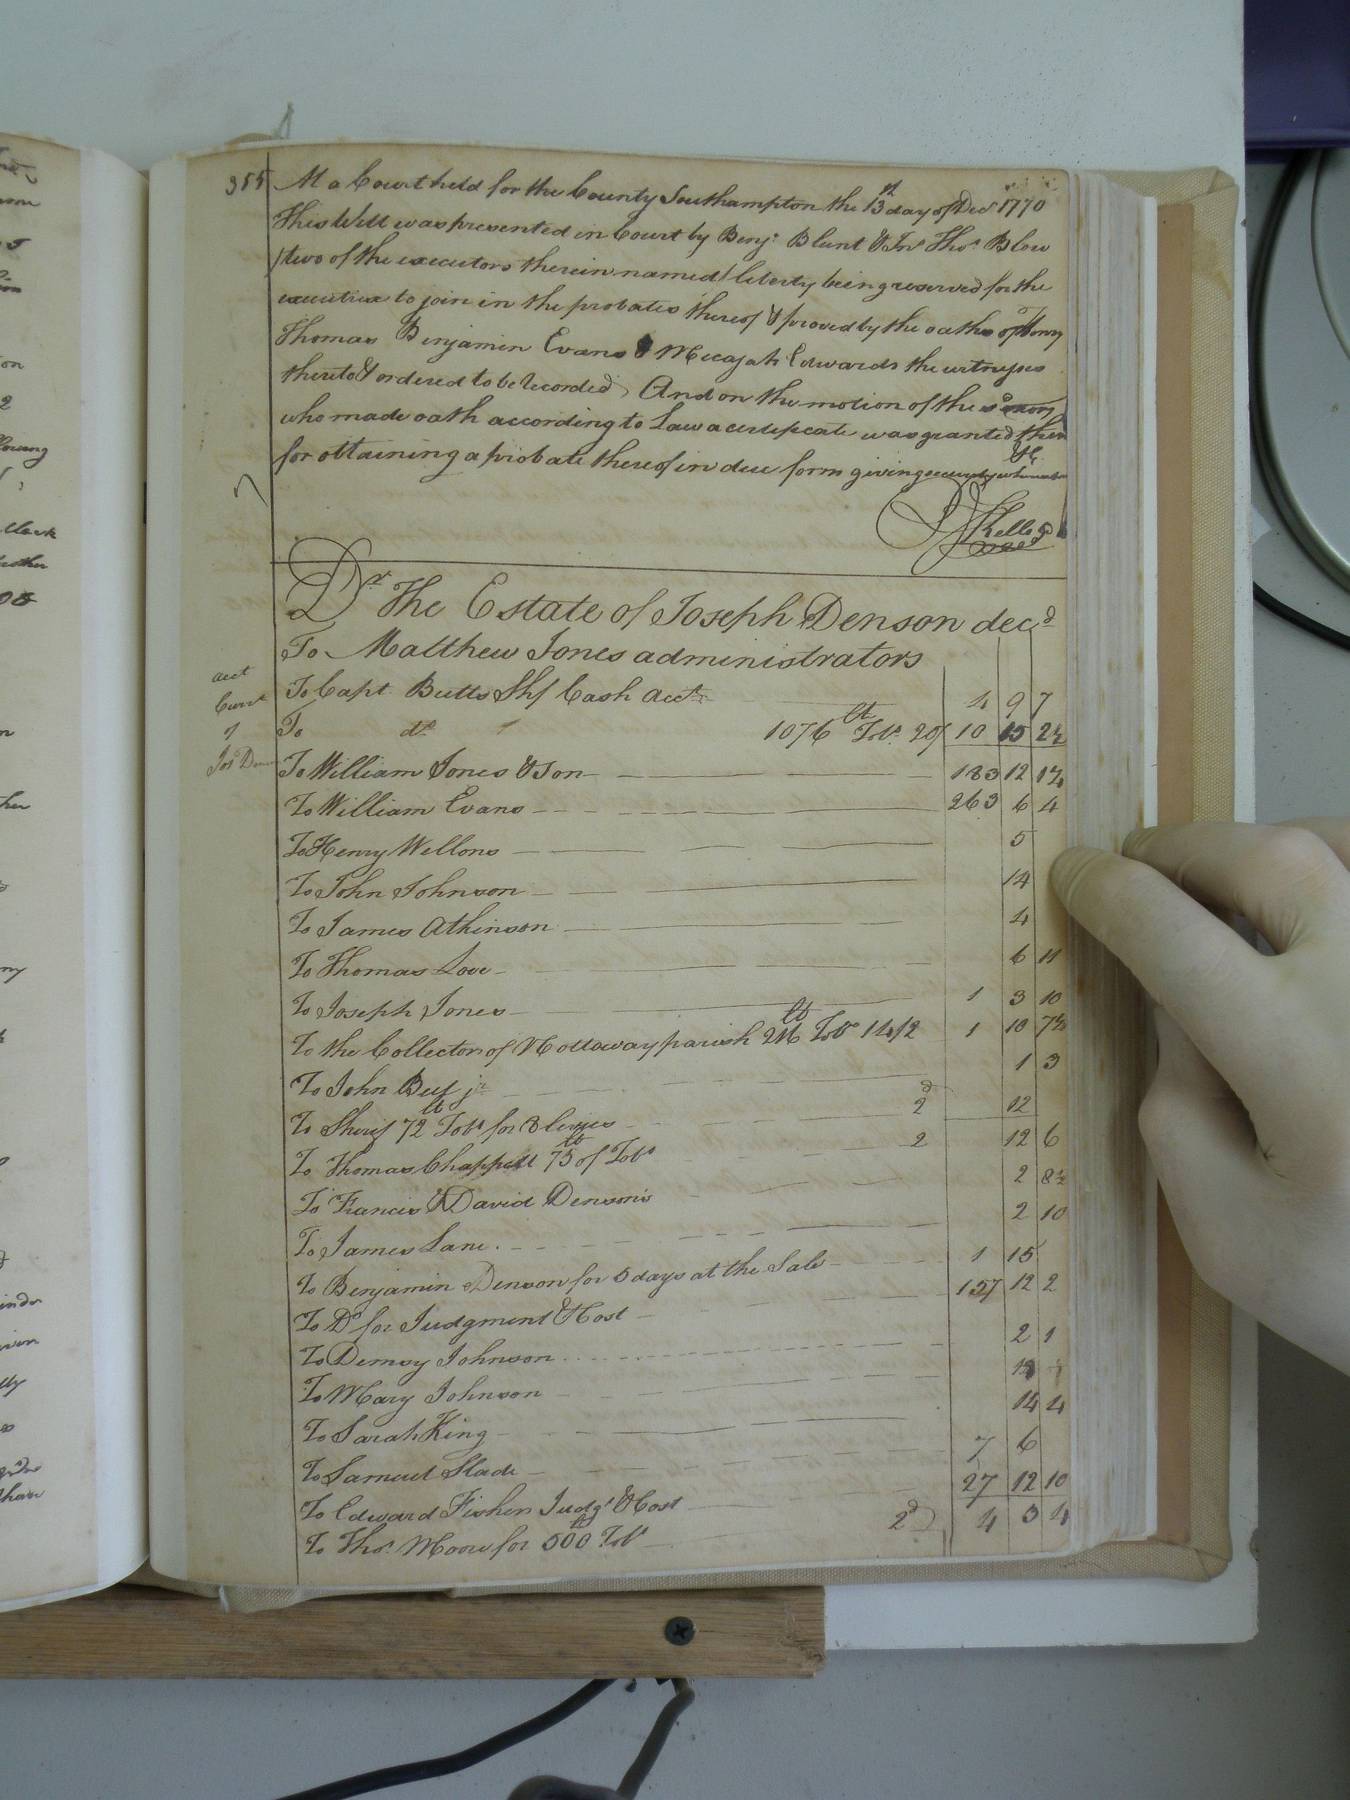 355 At a Court held for the County Southampton the 13th day of Decr 1770
This Will was presented in Court by Benjn Blunt & Jno Thos Blow
/two of the executors therein named/ liberty being reserved for the
executrix to join in the probate thereof & proved by the oaths of Henry
Thomas Benjamin Evans & Mecajah Edwards the witnesses
thereto & ordered to be recorded And on the motion of the sd
who made oath according to Law a certificate was granted them
for obtaining a probate thereof in due form giving security whereupon &c
Dr The Estate of Joseph Denson decd
To Matthew Jones administrators
acct
Curt
of
Jos Den
To Capt Butts Shf Cash acct 4 9 7
To do 1076 lt Tobo 20/ 10 15 2½
To William Jones & Son 183 12 1¾
To William Evans 263 6 4
To Henry Wellons 5
To John Johnson 14
To James Atkinson 4
To Thomas Love 6 11
To Joseph Jones 1 3 10
To the Collector of Nottoway parish 216 lt Tobo 14/2 1 10 7½
To John Bell jr 1 3
To Sherif 72 lt Tobo for 8 levies 2d 12
To Thomas Chappell 75 lt of Tobo 2 12 6
To Francis & David Denson's 2 8½
To James Lane. 2 10
To Benjamin Denson for 5 days at the Sale 1 15
To Do for Judgment & Cost 157 12 2
To Demsy Johnson 2 1
To Mary Johnson
To Sarah King 14 4
To Samuel Slade 7 6
To Edward Fisher Judgt & Cost 27 12 10
To Thos Moore for 500 lt Tobo 2d 4 3 4